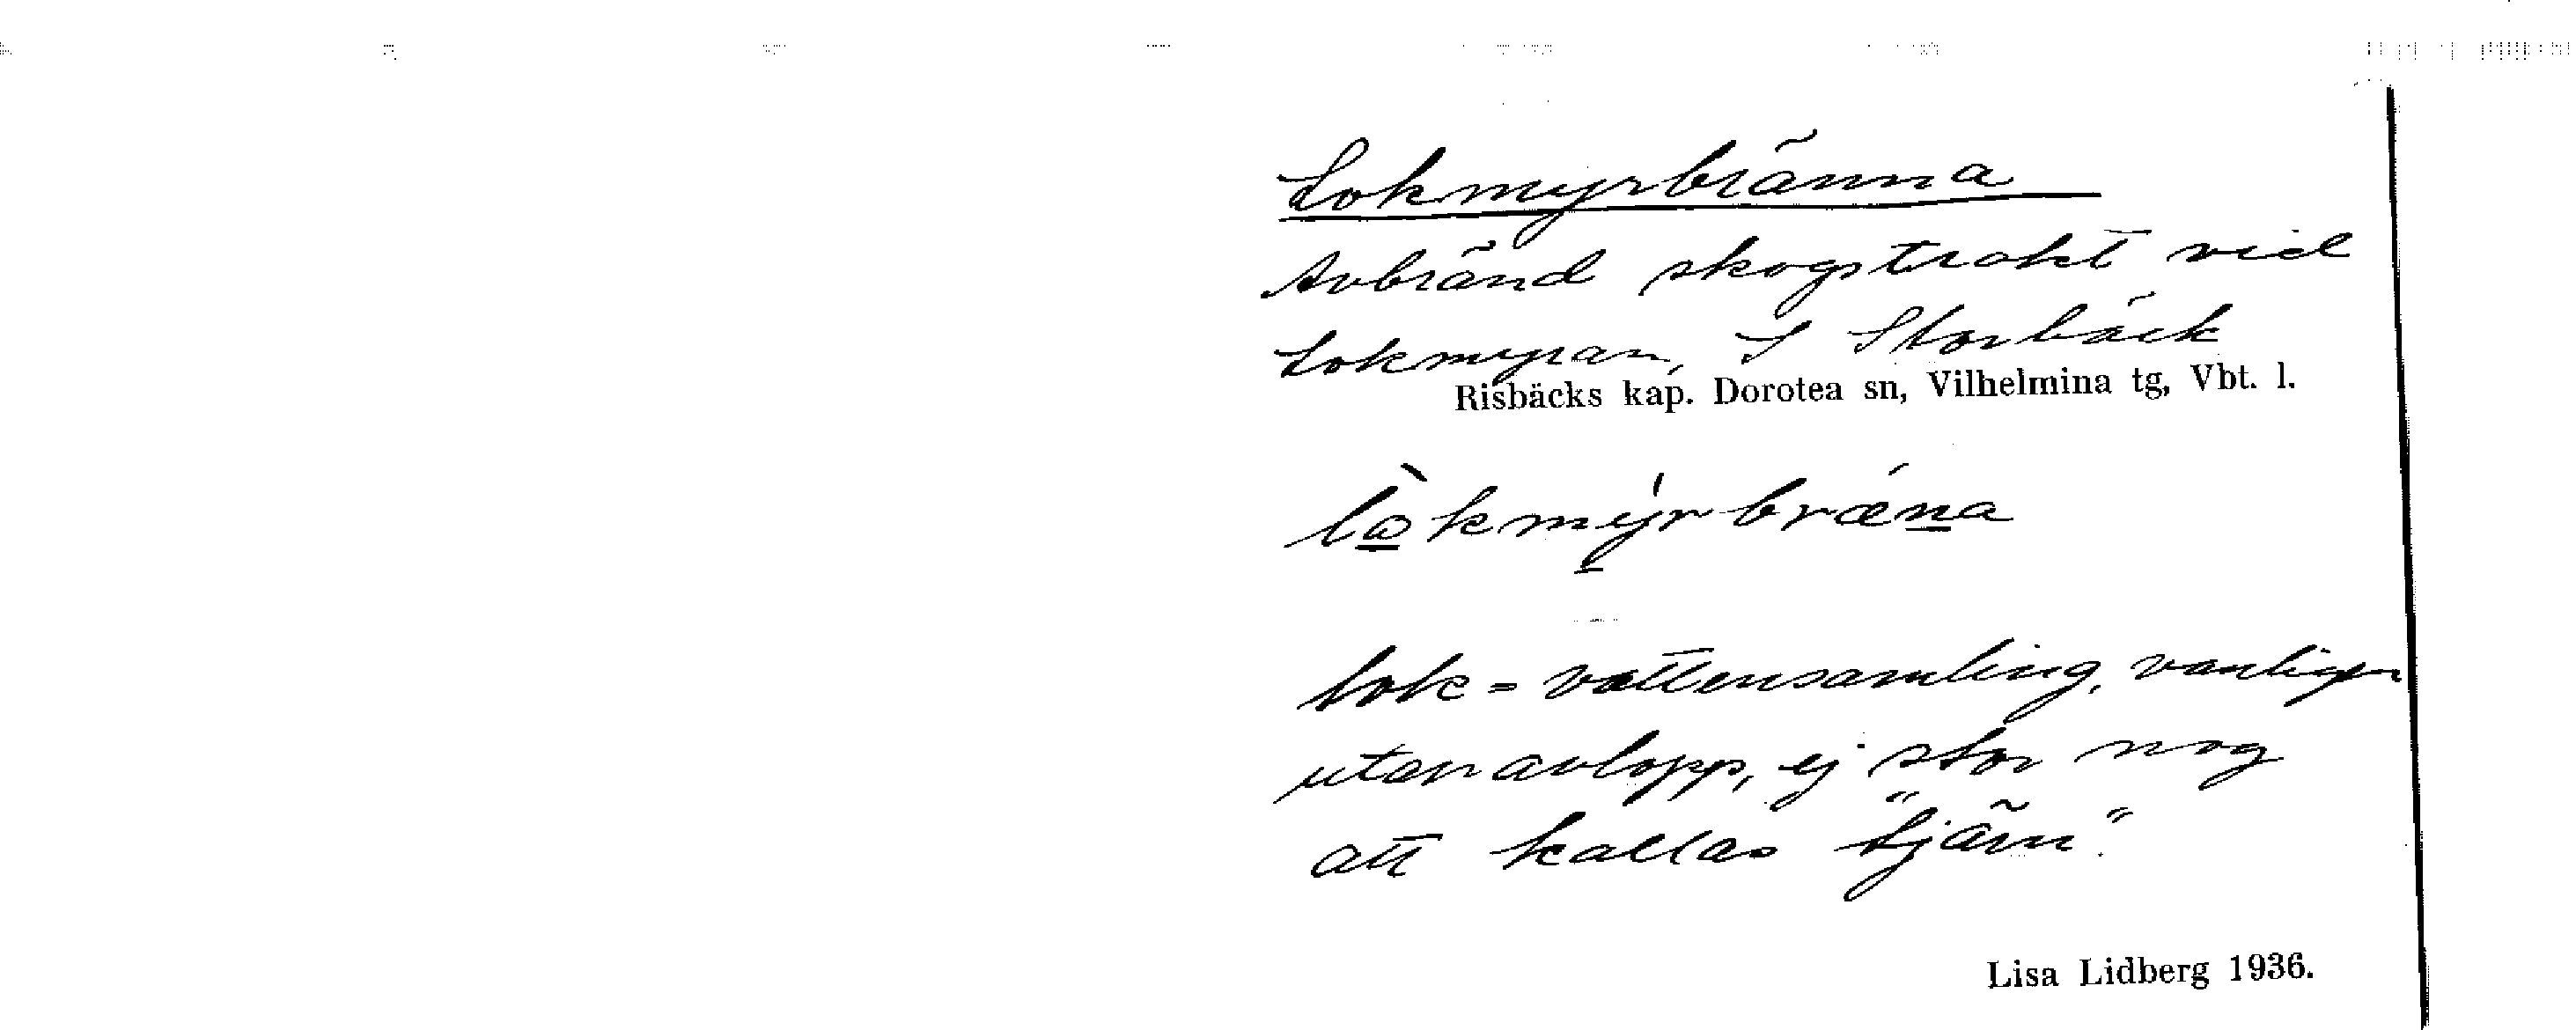 Lokmyrbränna
Avbränd skogstrakt vid
Lokmyran, S Storbäck
Risbäcks kap. Dorotea sn, Vilhelmina tg, Vbt. l.
lok = vattensamling, vanligen
utan avlopp, ej stor nog
att kallas "tjärn".
Lisa Lidberg 1936.